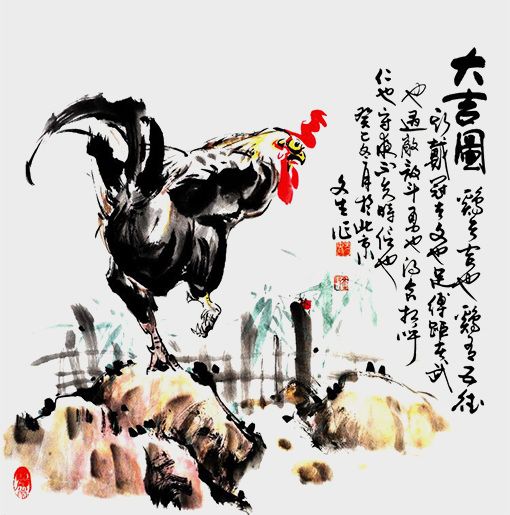 大吉圖 鷄者吉也鷄有五德
頭戴冠者文也足傅距者武
也遇敵敢斗勇也得食相呼
仁也守夜不失時信也
癸巳冬月於北京
文生作